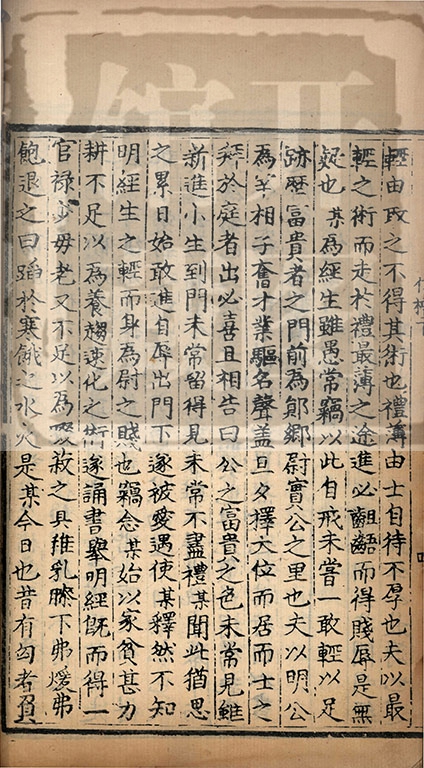 輕由政之不得其術也禮薄由士自待不孚也夫以最
輕之術而走於禮最薄之途進必齟齬而得賤辱是無
疑也某為經生雖愚常竊以此自戒未嘗一敢輕以足
跡歷富貴者之門前為鄓鄉尉實公之里也夫以明公
為羊相子奮才業驅名聲盖旦夕擇大位而居而士之
拜於庭者出必喜且相告曰公之富貴之色未常見雖
新進小生到門未常留得見未常不盡禮某聞此猶思
之累日始敢進自辱出門下遂被愛遇使某釋然不知
明經生之輕而身為尉之賤也竊念某始以家貧甚力
耕不足以為養趨速化之術遂誦書舉明經既而得一
官禄少母老又不足以為啜菽之具稚乳滕下弗煖弗
飽退之曰蹈於寒餓之水火是某今日也昔有匃者負